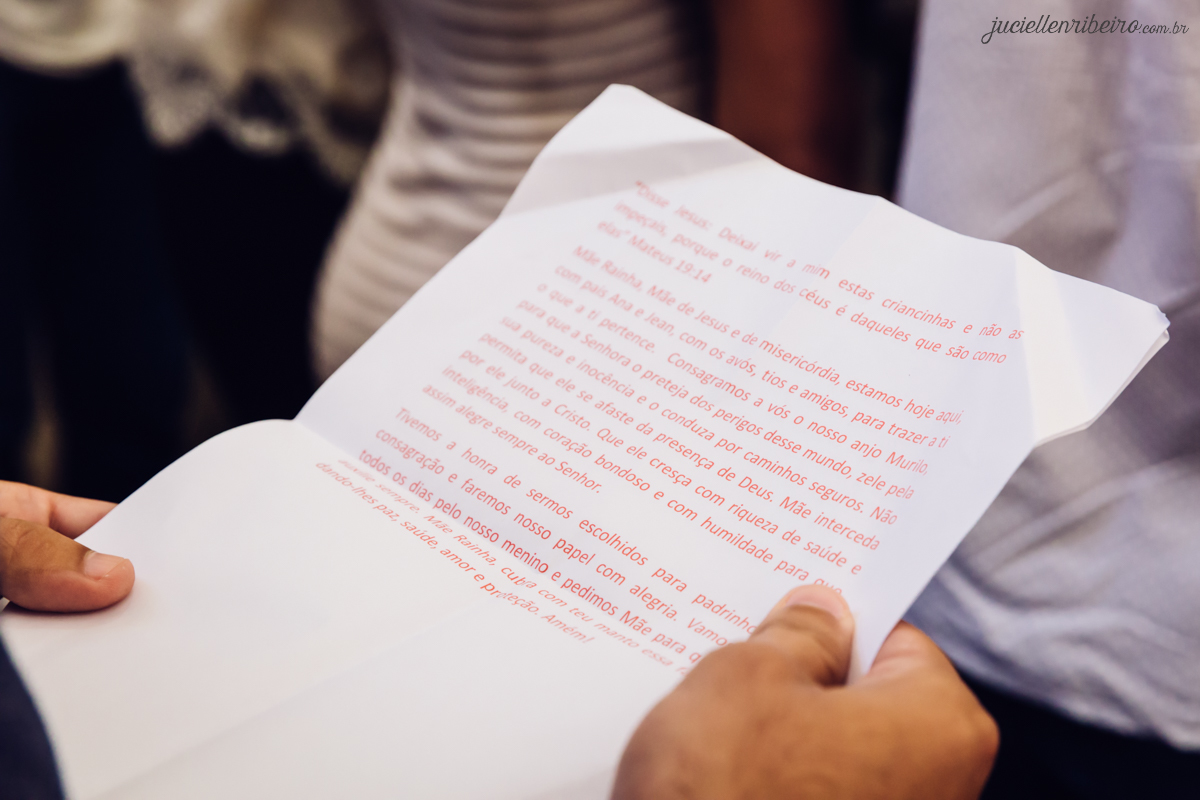 juciellenribeiro.com.br
"Disse Jesus: Deixai vir a mim estas criancinhas e não as
impeçais, porque o reino dos céus é daqueles que são como
elas" Mateus 19:14
Mãe Rainha, Mãe de Jesus e de misericórdia, estamos hoje aqui,
com pais Ana e Jean, com os avós, tios e amigos, para trazer a ti
o que a ti pertence. Consagramos a vós o nosso anjo Murilo,
para que a Senhora o proteja dos perigos desse mundo, zele pela
sua pureza e inocência e o conduza por caminhos seguros. Não
permita que ele se afaste da presença de Deus. Mãe interceda
por ele junto a Cristo. Que ele cresça com riqueza de saúde e
inteligência, com coração bondoso e com humildade para que
assim alegre sempre ao Senhor.
Tivemos a honra de sermos escolhidos para
consagração e faremos nosso papel com alegria.
todos os dias pelo nosso menino e pedimos Mãe para
sempre. Mãe Rainha, cubra com teu manto essa
dando-lhes paz, saúde, amor e proteção. Amém!